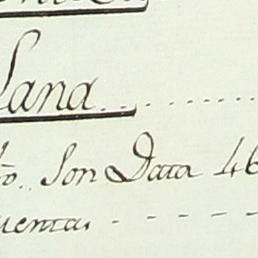 Lana . . . . . . . . .
fo. Son Data 46
uentas - - - - -